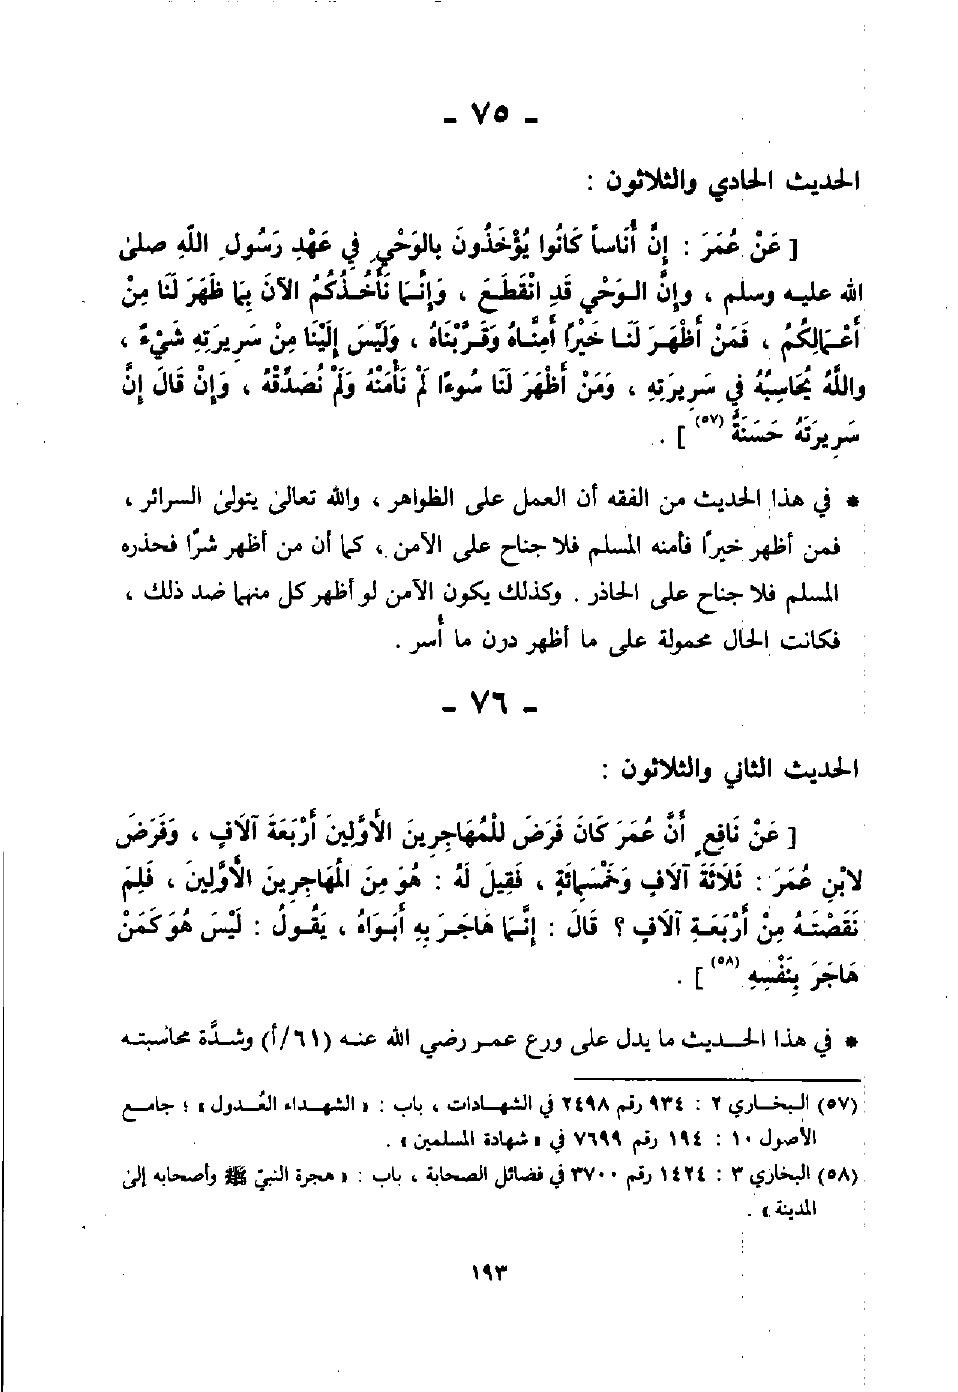 - ٧٥ -
الحديث الحادي والثلاثون :
[ عَنْ عُمَرَ : إِنَّ أُنَاساً كَانُوا يُؤْخَذُونَ بالوَحْيِ فِي عَهْدِ رَسُولِ اللَّهِ صلى
الله عليه وسلم ، وإنَّ الوَحْي قَدِ انْقَطَعَ ، وَإِنَّمَا نَأْخُذُكُمُ الآنَ بِمَا ظَهَرَ لَنَا مِنْ
أَعْمَالِكُمْ ، فَمَنْ أَظْهَرَ لَنَا خَيْراً أَمِنَّاهُ وَقَرَّبْنَاهُ ، وَلَيْسَ إِلَيْنَا مِنْ سَرِيرَتِهِ شَيْءٌ ،
واللَّهُ يُحَاسِبُهُ فِي سَرِيرَتِهِ ، وَمَنْ أَظْهَرَ لَنَا سُوءًا لَمْ نَأْمَنْهُ وَلَمْ نُصَدِّقْهُ ، وَإِنْ قَالَ إِنَّ
سَرِيرَتَهُ حَسَنَةٌ (٥٧) ] .
* في هذا الحديث من الفقه أن العمل على الظواهر ، والله تعالى يتولى السرائر ،
فمن أظهر خيراً فأمنه المسلم فلا جناح على الآمن ، كما أن من أظهر شراً فحذره
المسلم فلا جناح على الحاذر . وكذلك يكون الآمن لو أظهر كل منهما ضد ذلك ،
فكانت الحال محمولة على ما أظهر دون ما أسر .
- ٧٦ -
الحديث الثاني والثلاثون :
[ عَنْ نَافِعٍ أَنَّ عُمَرَ كَانَ فَرَضَ لِلْمُهَاجِرِينَ الأَوَّلِينَ أَرْبَعَةَ آلاَفٍ ، وَفَرَضَ
لاِبْنِ عُمَرَ : ثَلاَثَةَ آلاَفٍ وَخَمْسَمِائَةٍ ، فَقِيلَ لَهُ : هُوَ مِنَ المُهَاجِرِينَ الأَوَّلِينَ ، فَلِمَ
نَقَصْتَهُ مِنْ أَرْبَعَةِ آلاَفٍ ؟ قَالَ : إِنَّمَا هَاجَرَ بِهِ أَبَوَاهُ ، يَقُولُ : لَيْسَ هُوَ كَمَنْ
هَاجَرَ بِنَفْسِهِ (٥٨) ] .
* في هذا الحديث ما يدل على ورع عمر رضي الله عنه (٦١/أ) وشدَّة محاسبته
(٥٧) البخاري ٢ : ٩٣٤ رقم ٢٤٩٨ في الشهادات ، باب : « الشهداء العُدول » ؛ جامع
الأصول ١٠ : ١٩٤ رقم ٧٦٩٩ في « شهادة المسلمين » .
(٥٨) البخاري ٣ : ١٤٢٤ رقم ٣٧٠٠ في فضائل الصحابة ، باب : « هجرة النبيّ ﷺ وأصحابه إلى
المدينة » .
١٩٣